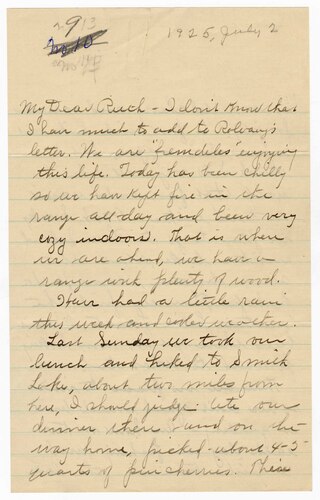 2913
1925, July 2
My Dear Ruth - I don't know that
I have much to add to
letter. We are enjoying
this life. Today has been chilly
so we have kept fire in the
range all day and been very
cozy indoors. That is where
we are ahead, we have a
range with plenty of wood.
Have had a little rain
this week and cooler weather.
Last Sunday we took our
lunch and hiked to Smith
Lake, about two miles from
here, I should judge. Ate our
dinner there and on the
way home, picked about 4-5
quarts of pin cherries. These